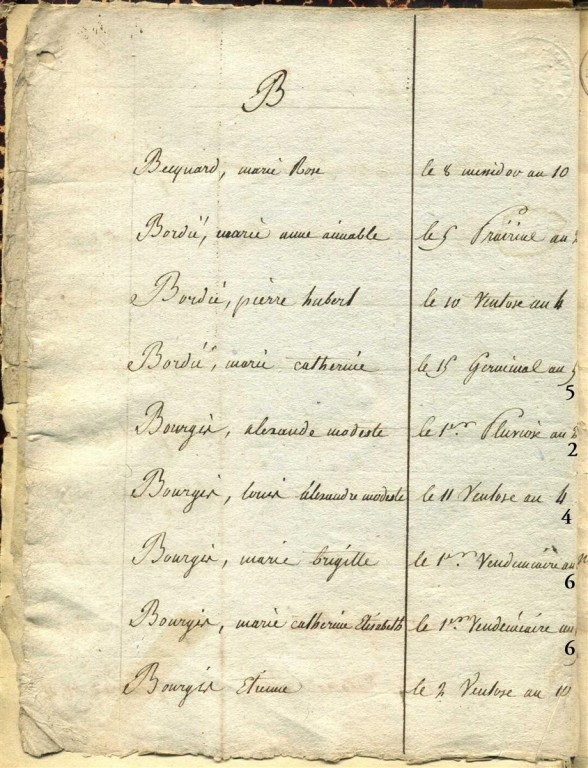 B
Becquard, marie Rose le 8 messidor an 10
Bordié, marie anne aimable le 5 Prairial an
Bordié, pierre hubert le 10 Ventose an 4
Bordié, marie catherine le 15 Germinal an 5
5
Bourgis, alexandre modeste le 1er Pluviose an
2
Bourgis, louis alexandre modeste le 11 Ventose an 4
4
Bourgis, marie brigille le 1er Vendemiaire an
6
Bourgis, marie catherine Elisabeth le 1er Vendemiaire an
6
Bourgis Etienne le 2 Ventose an 10